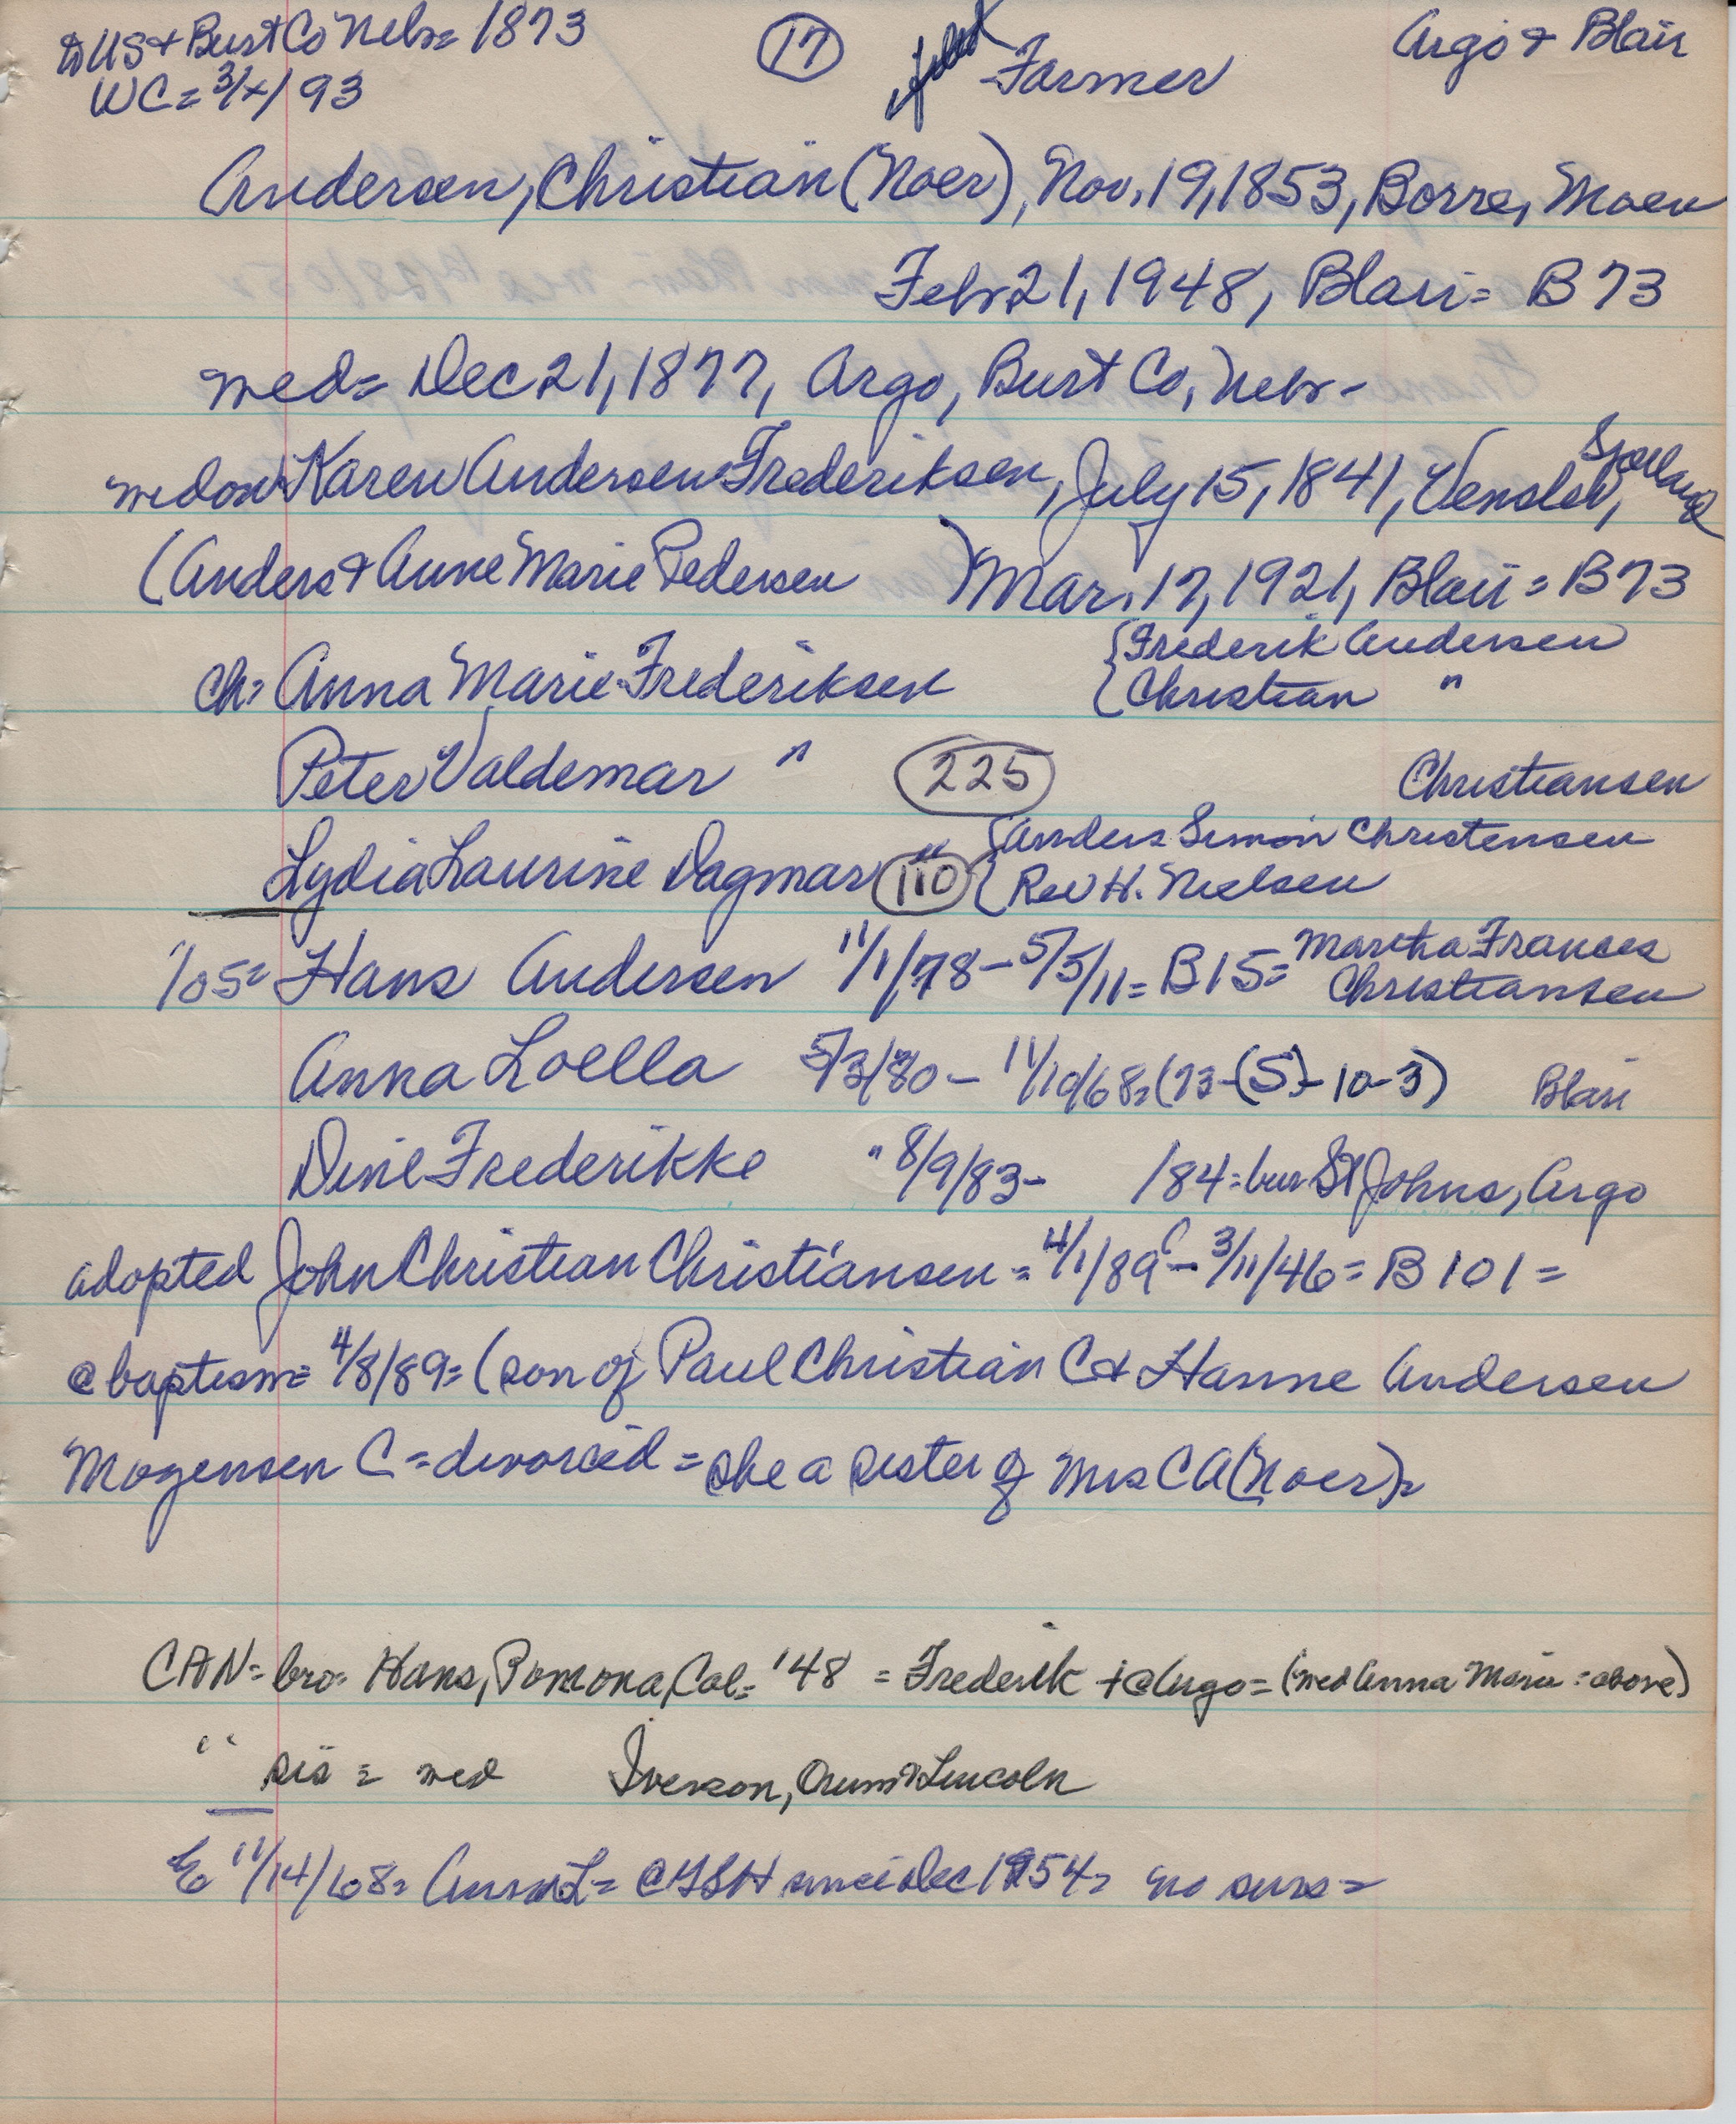 to US & Burt Co Nebr = 1873
WC = 3/x/93
17
Farmer
Argo & Blair
Andersen, Christian (Noer), Nov. 19, 1853, Borre, Moen
Feb 21, 1948, Blair = B 73
med = Dec 21, 1877, Argo, Burt Co, Nebr -
widow Karen Andersen Frederiksen, July 15, 1841, Venslev, Sjaelland
(Anders & Anne Marie Pedersen ) Mar. 17, 1921, Blair = B 73
ch = Anna Marie Frederiksen { Frederik Andersen
{ Christian "
Peter Valdemar " 225 Christiansen
Lydia Laurine Dagmar " 110 { Anders Simon Christensen
{ Rev H. Nielsen
1/05 = Hans Andersen 11/1/78 - 5/5/11 = B 15 = Martha Frances
Christiansen
Anna Loella 5/3/80 - 11/10/68 = (73-(5)-10-3) Blair
Dine Frederikke " 8/9/83 - /84 = bur St Johns, Argo
adopted John Christian Christiansen = 4/1/89 - 3/11/46 = B 101 =
@ baptism = 4/8/89 = (son of Paul Christian C & Hanne Andersen
Mogensen C = divorced = she a sister of Mrs C A (Noer) =
CAN = bro = Hans, Pomona, Cal = '48 = Frederik + @ Argo = (med Anna Marie = above)
" sis = med Iverson, Orum & Lincoln
E 11/14/68 = Anna L = @ GSH since Dec 1954 = no surs =